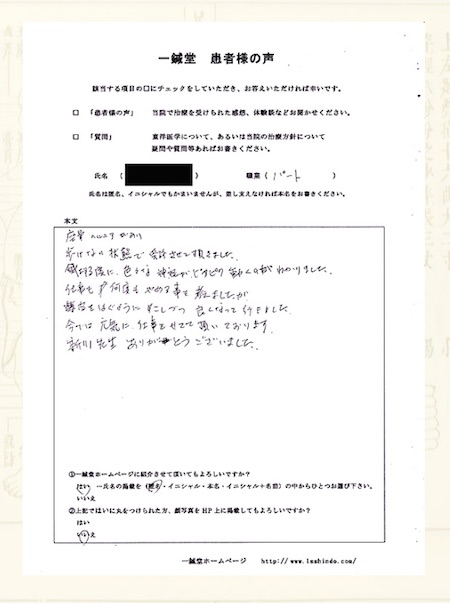 一鍼堂 患者様の声
該当する項目の口にチェックをしていただき、お答えいただければ幸いです。
□ 「患者様の声」 当院で治療を受けられた感想、体験談などお聞かせください。
□ 「質問」 東洋医学について、あるいは当院の治療方針について
疑問や質問等あればお書きください。
氏名 ( ) 職業 ( パート )
氏名は匿名、イニシャルでもかまいませんが、差し支えなければ本名をお書きください。
本文
腰骨 ヘルニアがあり
歩けない状態で 受診させて頂きました。
に、色々な 神経が どきどき 動くのが わかりました。
仕事も 何度も やめる事を 考えましたが
をはぐように すこしづつ 良くなって 行きました。
今では 元気に 仕事をさせて 頂いております。
新川先生 ありがとうございました。
①一鍼堂ホームページに紹介させて頂いてもよろしいですか?
はい →氏名の掲載を (匿名・イニシャル・本名・イニシャル+名前) の中からひとつお選び下さい。
いいえ
②上記ではいに丸をつけられた方、顔写真を HP 上に掲載してもよろしいですか?
はい
いいえ
一鍼堂ホームページ http://www.isshindo.com/